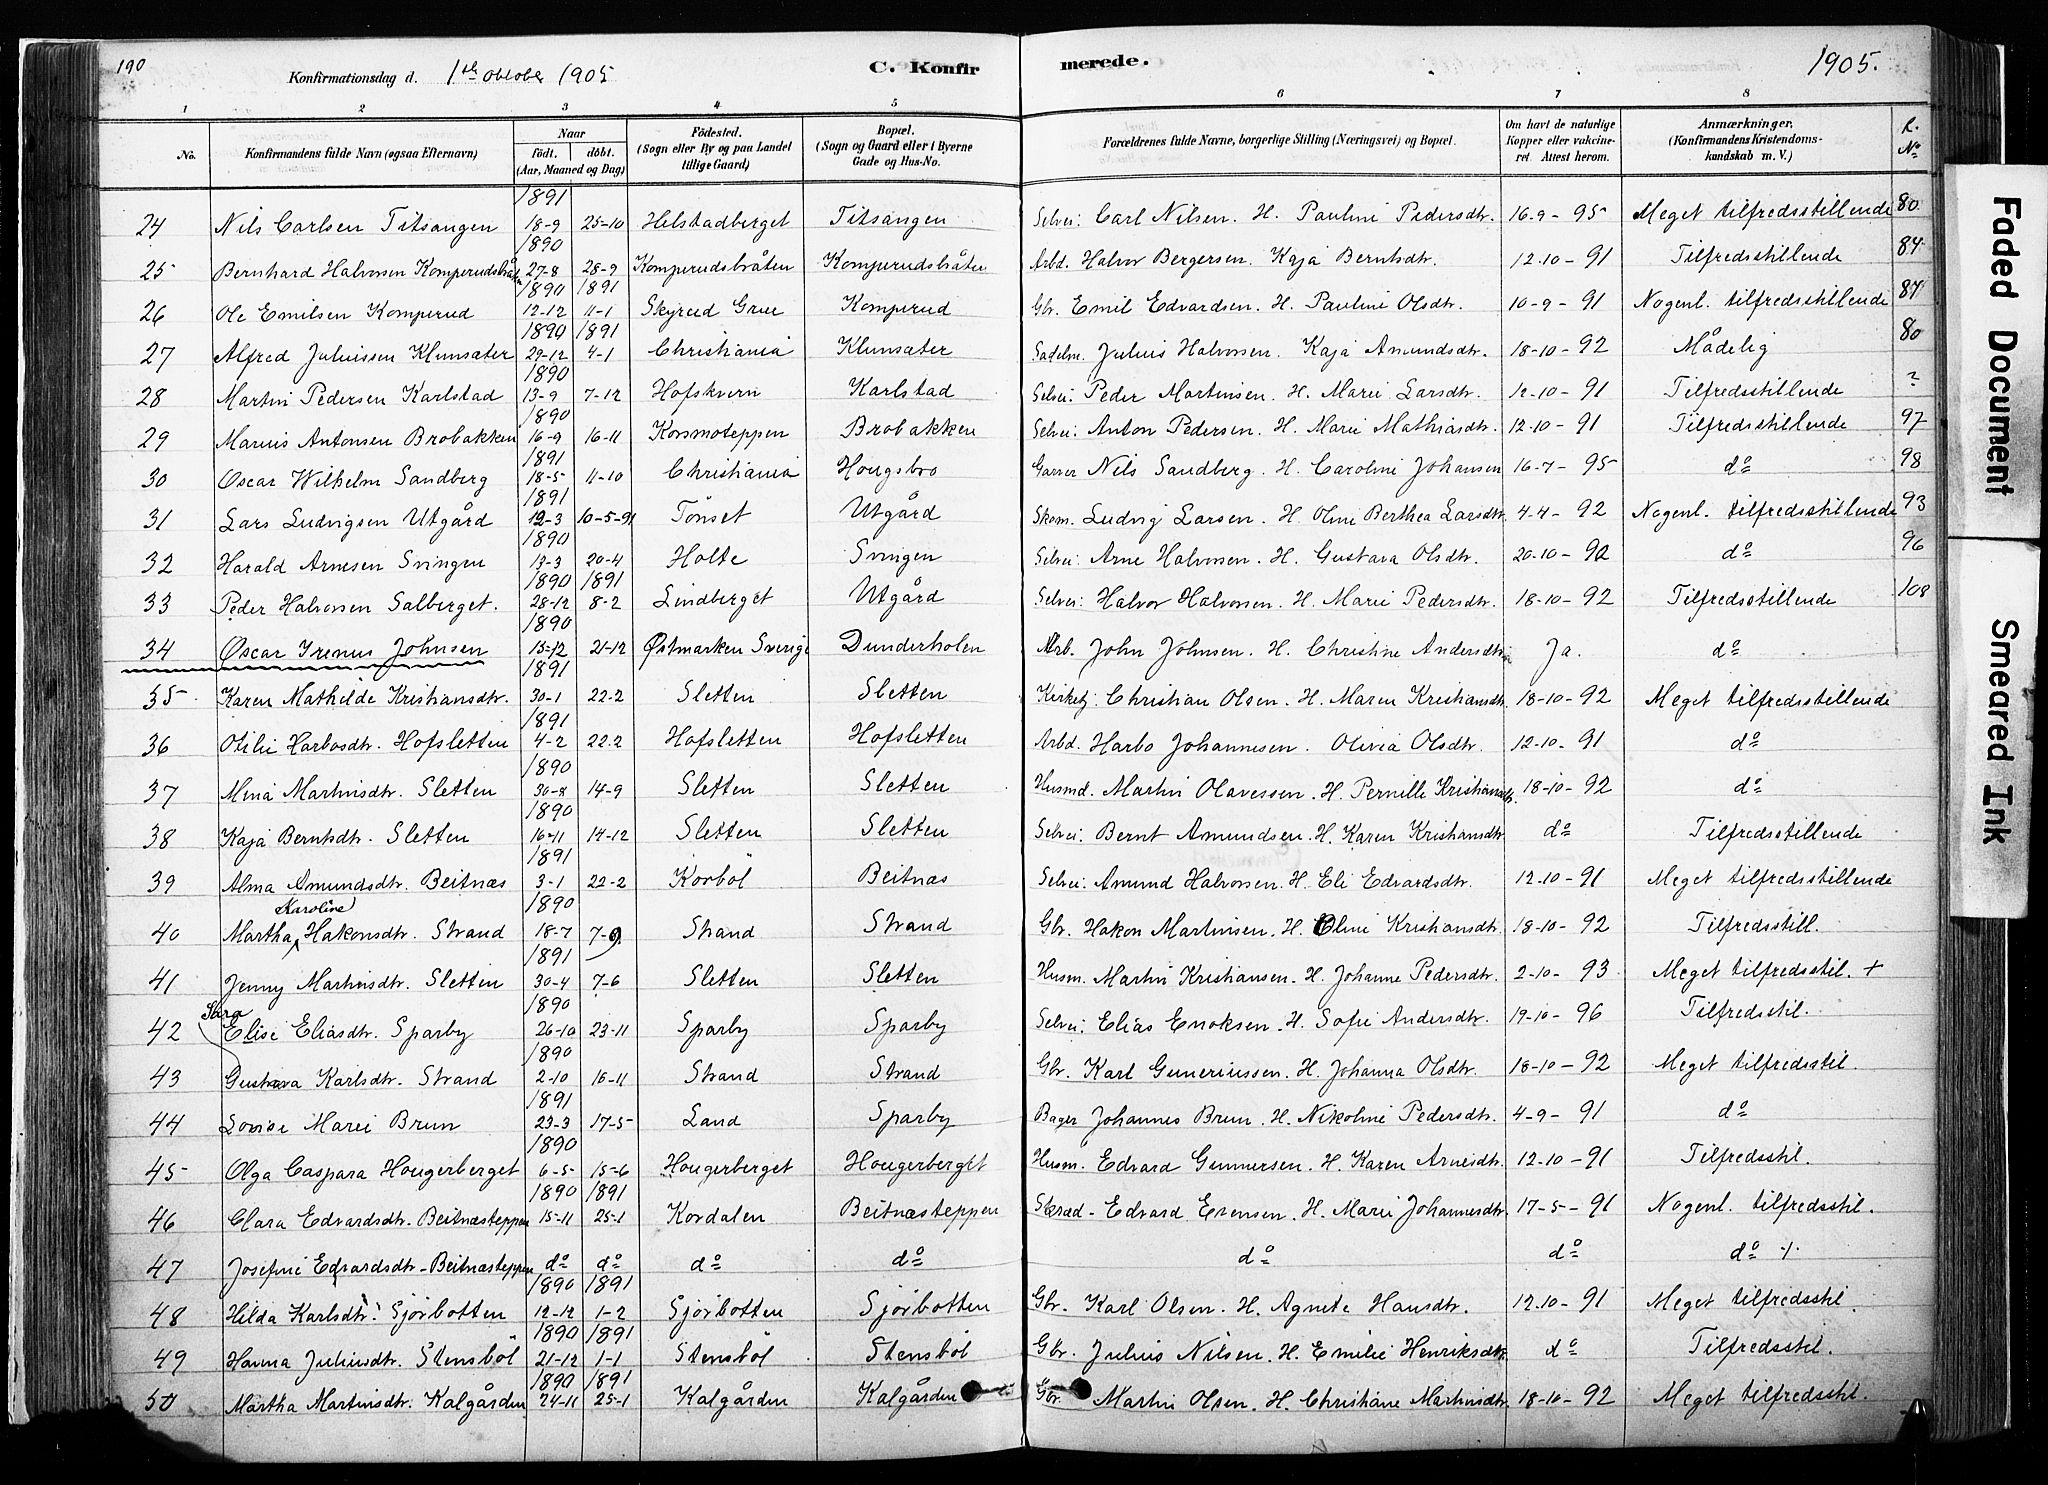 190
Konfirmationsdag d. 1ste Oktober 1905
C. Konfirmerede.
1905.
1 2 3 4 5 6 7 8
No. | Konfirmandens fulde Navn (ogsaa Efternavn) | Naar født. døbt. (Aar, Maaned og Dag) | Fødested. (Sogn eller By og paa Landet tillige Gaard) | Bopæl. (Sogn og Gaard eller i Byerne Gade og Hus-No.) | Forældrenes fulde Navne, borgerlige Stilling (Næringsvei) og Bopæl. | Om havt de naturlige Kopper eller vakcineret. Attest herom. | Anmærkninger. (Konfirmandens Kristendomskundskab m. V.) | L. No
24 Nils Carlsen Titsangen 1891 18-9 25-10 Helstadberget Titsangen Selvei: Carl Nilsen. H. Pauline Pedersdtr. 16-9-95 Meget tilfredsstillende 80
25 Bernhard Halvorsen Komperudsbråten 1890 27-8 28-9 Komperudsbråten Komperudsbråten Arbd. Halvor Bergersen. Kaja Berntsdtr. 12-10-91 Tilfredsstillende 84
26 Ole Emilsen Komperud 1890 1891 12-12 11-1 Skyrud Grue Komperud Gbr. Emil Edvardsen. H. Pauline Olsdtr. 10-9-91 Nogenl. tilfredsstillende 87
27 Alfred Juliussen Klunsæter 1890 1891 29-12 4-1 Christiania Klunsæter Sadelm. Julius Halvorsen. Kaja Amundsdtr. 18-10-92 Mådelig 80
28 Martin Pedersen Karlstad 1890 13-9 7-12 Hofskvern Karlstad Selvei: Peder Martinsen. H. Marie Larsdtr. 12-10-91 Tilfredsstillende ?
29 Marius Antonsen Brobakken 1890 16-9 16-11 Kosmoteppen Brobakken Selvei: Anton Pedersen. H. Marie Mathiasdtr. 12-10-91 Tilfredsstillende 97
30 Oscar Wilhelm Sandberg 1891 18-5 11-10 Christiania Hougsbro Garver Nils Sandberg. H. Caroline Johansen 16-7-95 do 98
31 Lars Ludvigsen Utgård 1891 12-3 10-5-91 Tönset Utgård Skom. Ludvig Larsen. H. Oline Berthea Larsdtr. 4-4-92 Nogenl. tilfredsstillende 93
32 Harald Arnesen Svingen 1890 13-3 20-4 Holte Svingen Selvei: Arne Halvorsen. H. Gustava Olsdtr. 20-10-92 do 96
33 Peder Halvorsen Salberget. 1890 1891 28-12 8-2 Lindberget Utgård Selvei: Halvor Halvorsen. H. Marie Pedersdtr. 18-10-92 Tilfredsstillende 108
34 Oscar Irenius Johnsen 1890 15-12 21-12 Østmarken Sverige Dunderholen Arb. John Johnsen. H. Christine Andersdtr. Ja. do
35 Karen Mathilde Kristiansdtr. 1891 30-1 22-2 Sletten Sletten Kirketj. Christian Olsen. H. Maren Kristiansdtr. 18-10-92 Meget tilfredsstillende
36 Otilie Harbosdtr. Hofsletten 1891 4-2 22-2 Hofsletten Hofsletten Arbd. Harbo Johannesen. Olivia Olsdtr. 12-10-91 do
37 Mina Martinsdtr. Sletten 1890 30-8 14-9 Sletten Sletten Husmd. Martin Olavessen. H. Pernille Kristiansdtr. 18-10-92 do
38 Kaja Berntsdtr. Sletten 1890 16-11 14-12 Sletten Sletten Selvei: Bernt Amundsen. H. Karen Kristiansdtr. do Tilfredsstillende
39 Alma Amundsdtr. Beitnæs 1891 3-1 22-2 Korböl Beitnæs Selvei: Amund Halvorsen. H. Eli Edvardsdtr. 12-10-91 Meget tilfredsstillende
40 Martha Karoline Hakonsdtr. Strand 1890 18-7 7-9 Strand Strand Gbr. Hakon Martinsen. H. Oline Kristiansdtr. 18-10-92 Tilfredsstill.
41 Jenny Martinsdtr. Sletten 1891 30-4 7-6 Sletten Sletten Husm. Martin Kristiansen. H. Johanne Pedersdtr. 2-10-93 Meget tilfredsstil. +
42 Sara Elise Eliasdtr. Sparby 1890 26-10 23-11 Sparby Sparby Selvei: Elias Enoksen. H. Sofie Andersdtr. 19-10-96 Tilfredsstil.
43 Gustava Karlsdtr. Strand 1890 2-10 16-11 Strand Strand Gbr. Karl Guneriussen. H. Johanna Olsdtr. 18-10-92 Meget tilfredsstil.
44 Lovise Marie Brun 1891 23-3 17-5 Land Sparby Bager Johannes Brun. H. Nikoline Pedersdtr. 4-9-91 do
45 Olga Caspara Hougerberget 1890 6-5 15-6 Hougerberget Hougerberget Husm. Edvard Gunnersen. H. Karen Arnesdtr. 12-10-91 Tilfredsstil.
46 Clara Edvardsdtr. Beitnæsteppen 1890 1891 15-11 25-1 Kordalen Beitnæsteppen Edvard Evensen. H. Marie Johannesdtr. 17-5-91 Nogenl. tilfredsstil.
47 Josefine Edvardsdtr. Beitnæsteppen do do do do do do do
48 Hilda Karlsdtr. Sjörbotten 1890 1891 12-12 1-2 Sjörbotten Sjörbotten Gbr. Karl Olsen. H. Agnete Hansdtr. 12-10-91 Meget tilfredsstil.
49 Hanna Juliusdtr. Stensböl 1890 1891 21-12 1-1 Stensböl Stensböl Gbr. Julius Nilsen. H. Emilie Henriksdtr. do Tilfredsstil.
50 Martha Martinsdtr. Kalgården 1890 1891 24-11 25-1 Kalgården Kalgården Gbr. Martin Olsen. H. Christiane Martinsdtr. 18-10-92 Meget tilfredsstil.
Faded Document
Smeared Ink